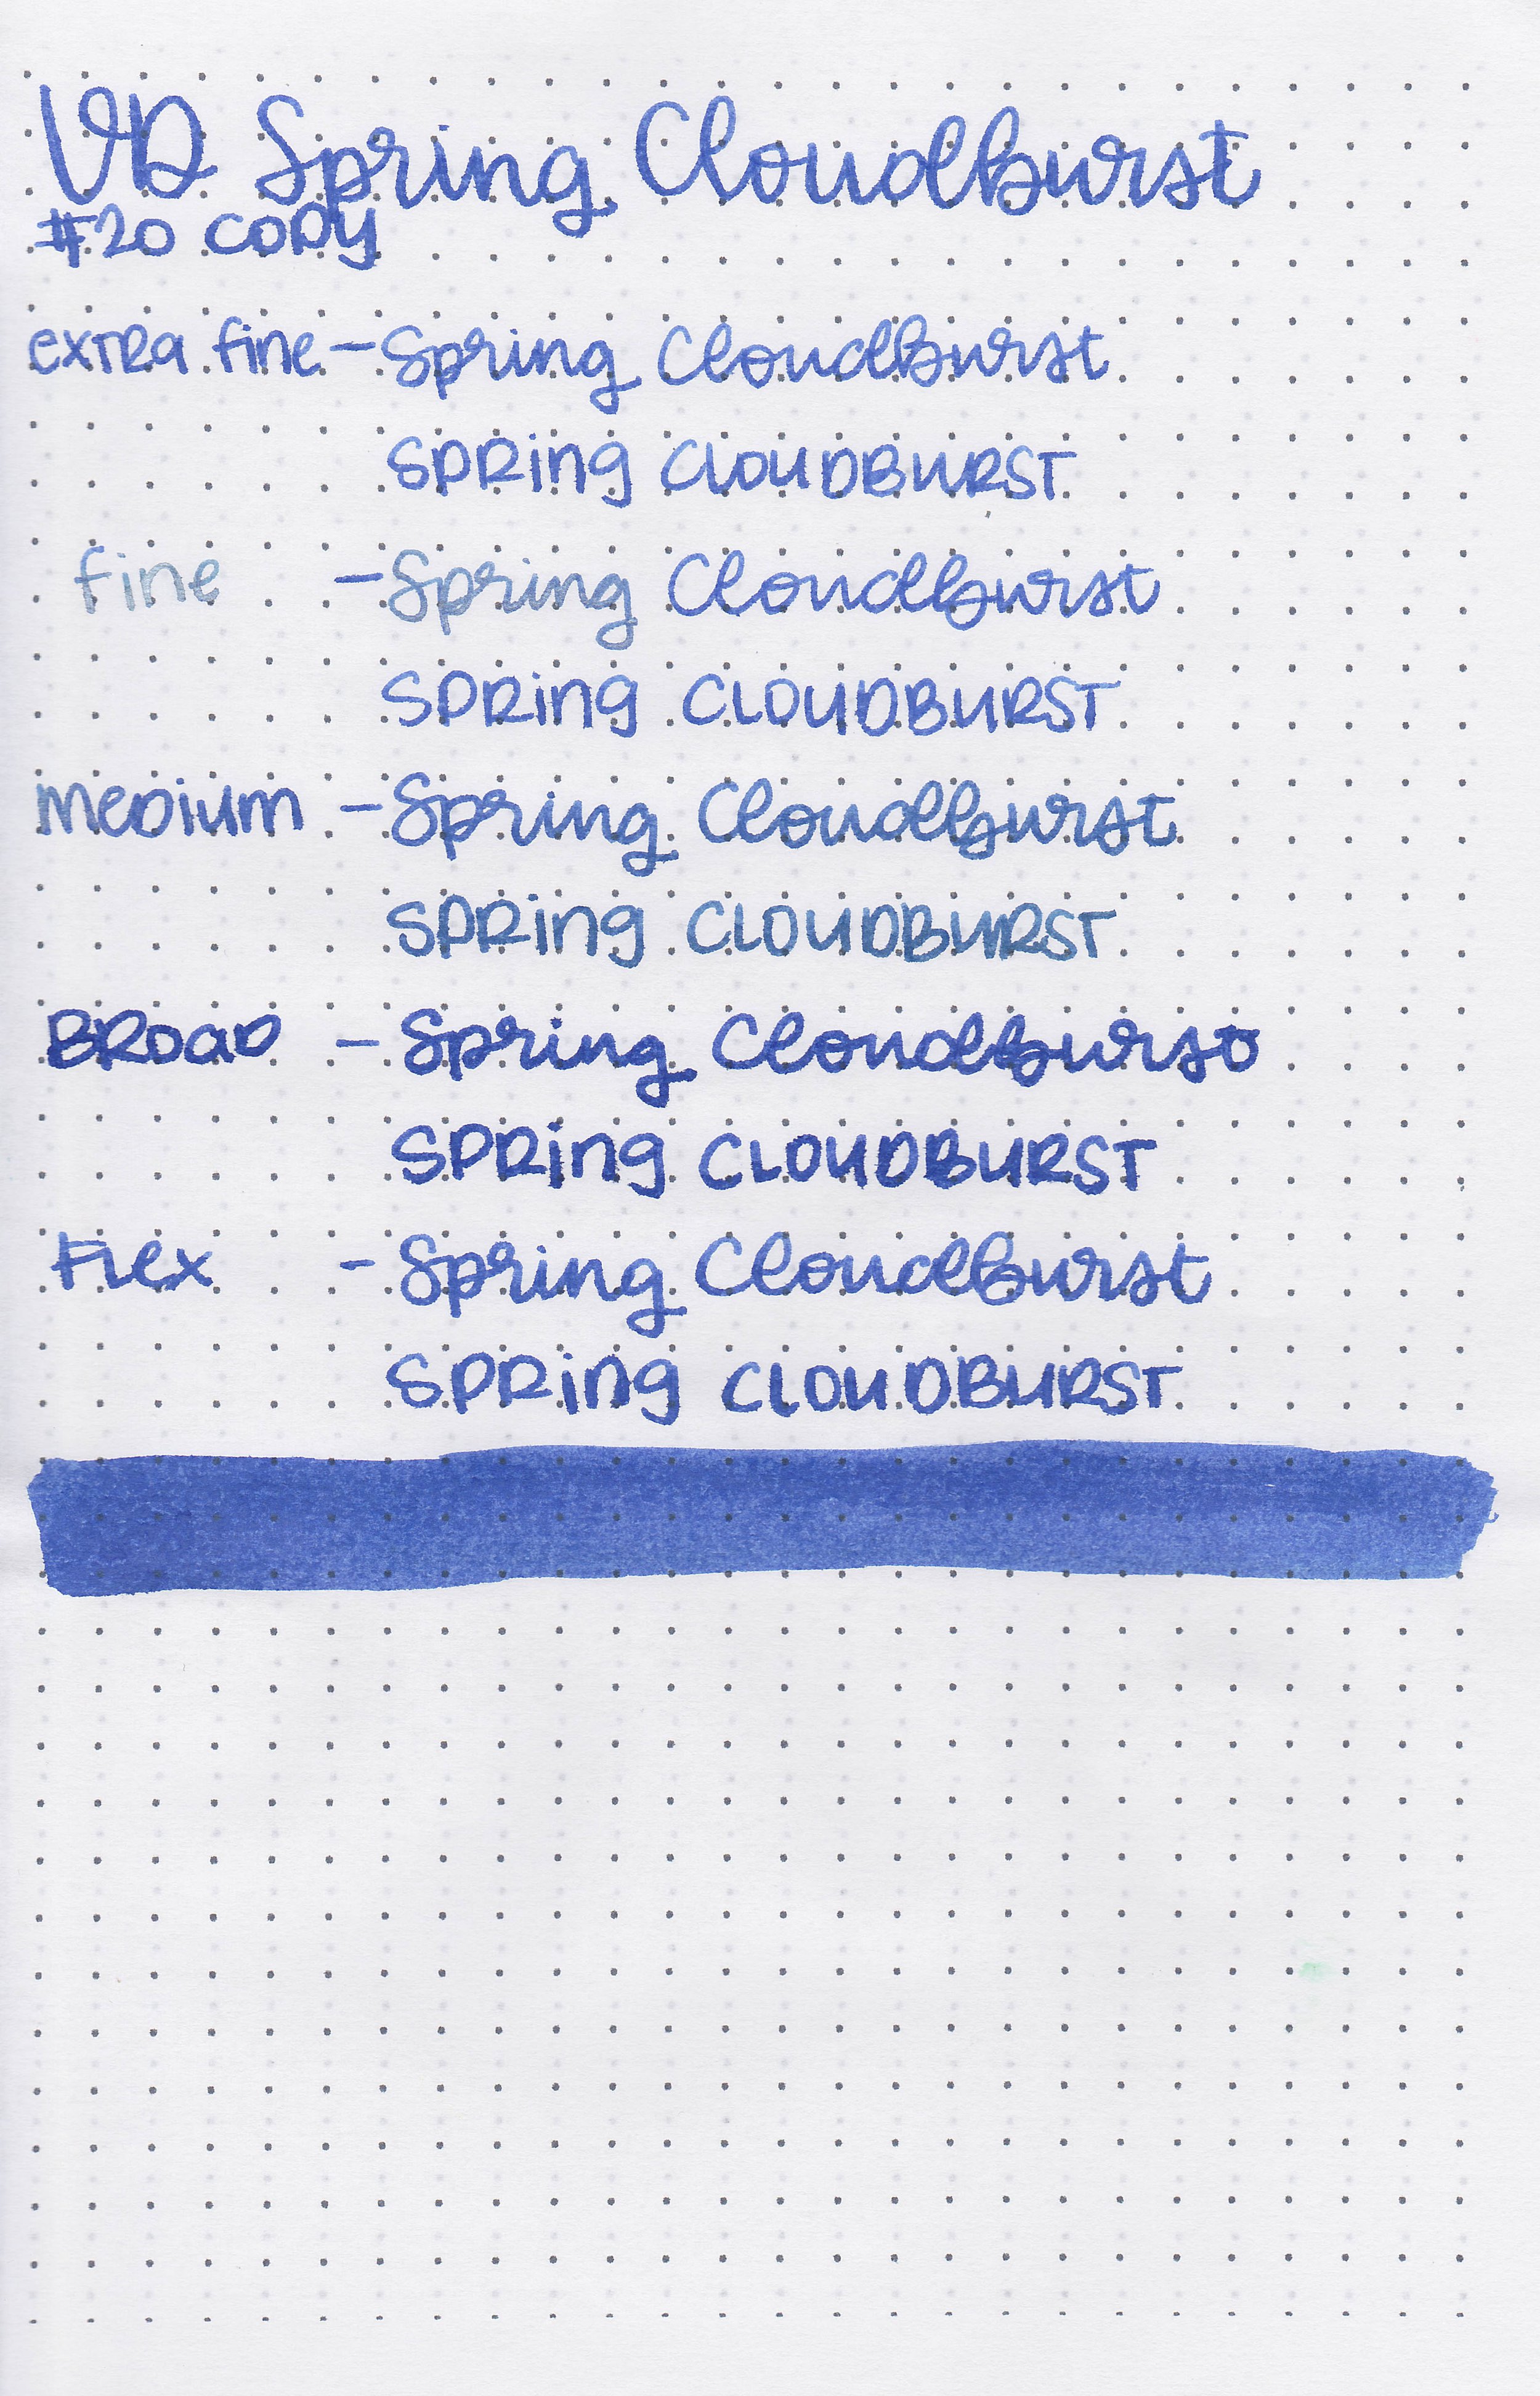 VD Spring Cloudburst
#20 COPY
extra fine - Spring Cloudburst
SPRing CLOUDBURST
fine - Spring Cloudburst
SPRing CLOUDBURST
Medium - Spring Cloudburst
SPRing CLOUDBURST
BROAD - Spring Cloudburst
SPRing CLOUDBURST
Flex - Spring Cloudburst
SPRing CLOUDBURST